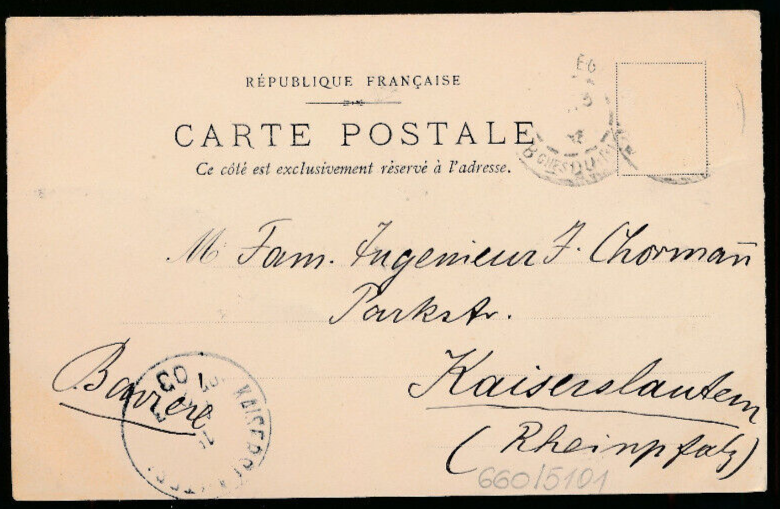 RÉPUBLIQUE FRANÇAISE
CARTE POSTALE
Ce côté est exclusivement réservé à l'adresse.
M Fam. Ingenieur F. Chormañ
Parkstr.
Bavière
Kaiserslautern
(Rheinpfalz)
660/5101